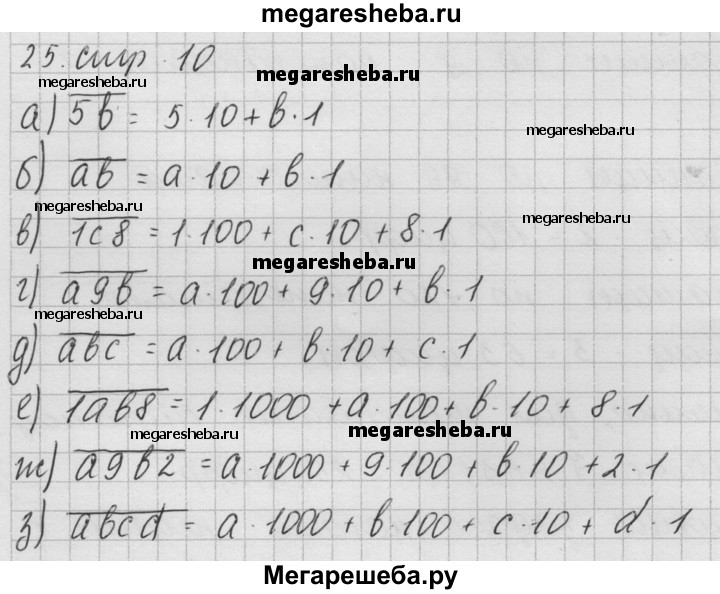 megaresheba.ru
25. стр. 10
megaresheba.ru
megaresheba.ru
а) 5b = 5·10+b·1
megaresheba.ru
б) ab = a·10 + b·1
megaresheba.ru
в) 1c8 = 1·100+ c·10 + 8·1
megaresheba.ru
г) a9b = a·100+ 9·10+ b·1
megaresheba.ru
д) abc = a·100+ b·10+ c·1
е) 1ab8 = 1·1000 +a·100+ b·10 + 8·1
megaresheba.ru
megaresheba.ru
ж) a9b2 = a·1000 + 9·100 + b·10 +2·1
з) abcd = a·1000 + b·100 + c·10 + d·1
Мегарешеба.ру